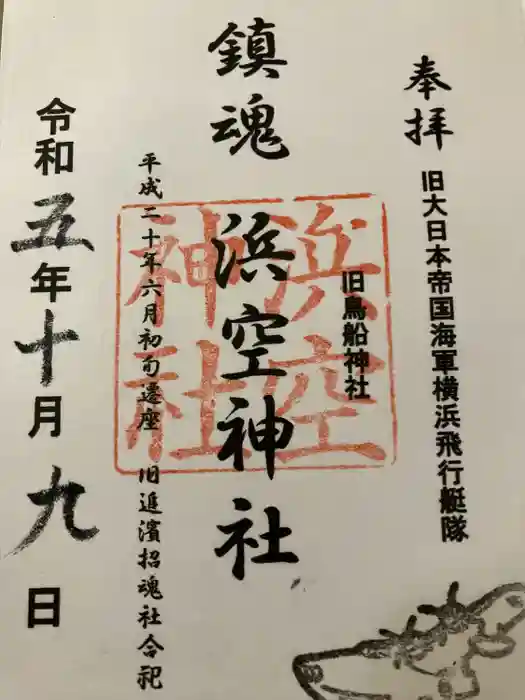 奉拝
旧大日本帝国海軍横浜飛行艇隊
旧鳥船神社
鎮魂
浜空神社
浜空
神社
平成二十年六月初旬遷座 旧追濱招魂社合祀
令和五年十月九日